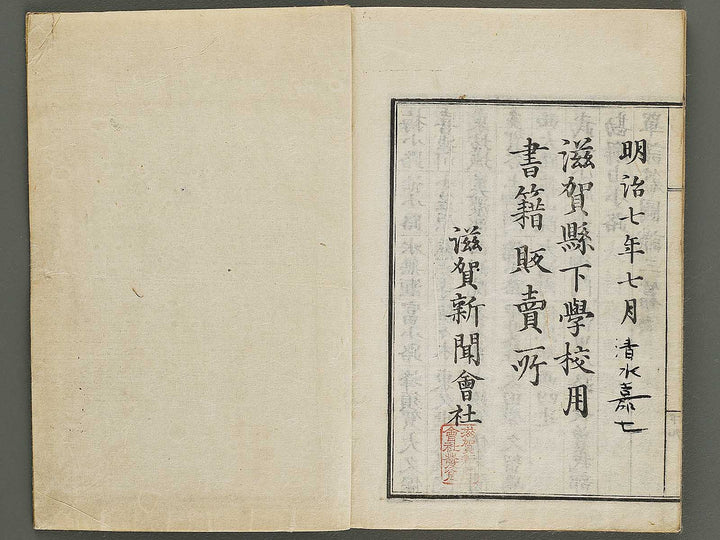 明治七年七月 清水嘉七
滋賀縣下學校用
書籍販賣所
滋賀新聞會社